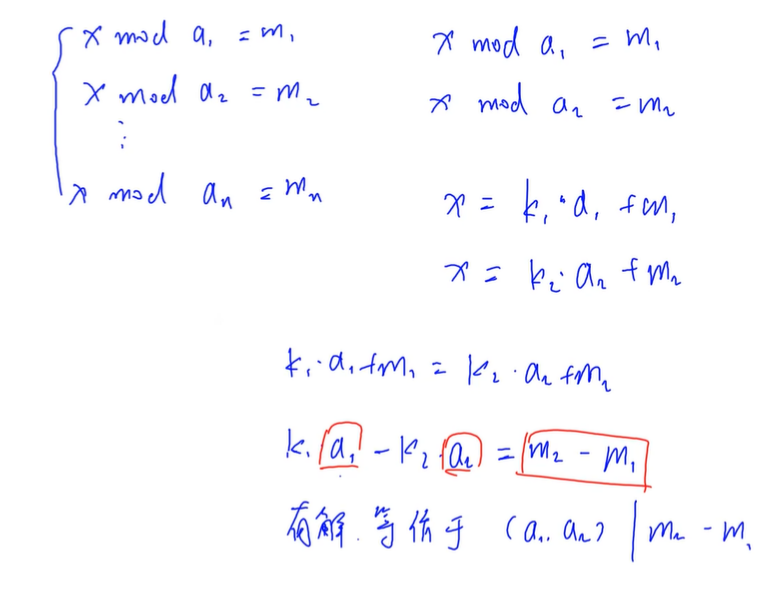 x mod a₁ = m₁
x mod a₂ = m₂
⋮
x mod aₙ = mₙ
x mod a₁ = m₁
x mod a₂ = m₂
x = k₁·a₁ + m₁
x = k₂·a₂ + m₂
k₁·a₁ + m₁ = k₂·a₂ + m₂
k₁ a₁ - k₂·a₂ = m₂ - m₁
有解.等价于 (a₁. a₂) | m₂ - m₁